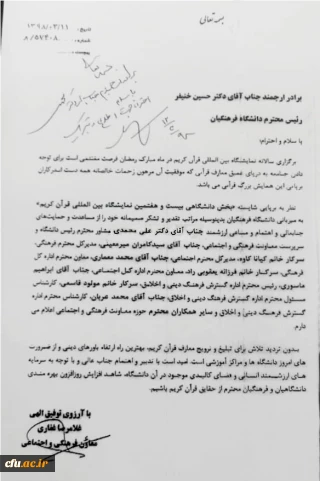 بسمه تعالی
۱۳۹۸/۰۳/۱۱
۸/۵۷۴۰۸
برادر ارجمند جناب آقای دکتر حسین خنیفر
رئیس محترم دانشگاه فرهنگیان
با سلام و احترام؛
برگزاری سالانه نمایشگاه بین المللی قرآن کریم در ماه مبارک رمضان فرصت مغتنمی است برای توجه
دادن جامعه به دریای عمیق معارف قرآنی که موفقیت آن مرهون زحمات خالصانه همه دست اندرکاران
برپایی این همایش بزرگ قرآنی می باشد.
نظر به برپایی شایسته «بخش دانشگاهی بیست و هفتمین نمایشگاه بین المللی قرآن کریم»
به میزبانی دانشگاه فرهنگیان بدینوسیله مراتب تقدیر و تشکر صمیمانه خود را از مساعدت و حمایت‌های
جنابعالی و اهتمام و مساعی ارزشمند جناب آقای دکتر علی محمدی مشاور محترم رئیس دانشگاه و
سرپرست معاونت فرهنگی و اجتماعی، جناب آقای سیدکامران میرمعینی، مدیرکل محترم فرهنگی،
سرکار خانم کیانا کاوه، مدیرکل محترم اجتماعی، جناب آقای محمد معماری، معاون محترم اداره کل
فرهنگی، سرکار خانم فرزانه یعقوبی راد، معاون محترم اداره کل اجتماعی، جناب آقای ابراهیم
رئیس محترم اداره گسترش فرهنگ دینی و اخلاق، سرکار خانم مولود قاسمی، کارشناس
مسئول محترم اداره گسترش فرهنگ دینی و اخلاق، جناب آقای محمد عربان، کارشناس محترم اداره
گسترش فرهنگ دینی و اخلاق و سایر همکاران محترم حوزه معاونت فرهنگی و اجتماعی اعلام می
دارم.
بدون تردید تلاش برای تبلیغ و ترویج معارف قرآن کریم، بهترین راه ارتقاء باورهای دینی و از ضرورت
های امروز دانشگاه ها و مراکز آموزشی است. امید است با تدبیر و اهتمام جناب عالی و با توجه به سرمایه
های ارزشمند انسانی و فضای کالبدی موجود در آن دانشگاه، شاهد افزایش روزافزون بهره مندی
دانشگاهیان و فرهنگیان محترم از حقایق قرآن کریم باشیم.
با آرزوی توفیق الهی
غلامرضا غفاری
معاون فرهنگی و اجتماعی
cfu.ac.ir